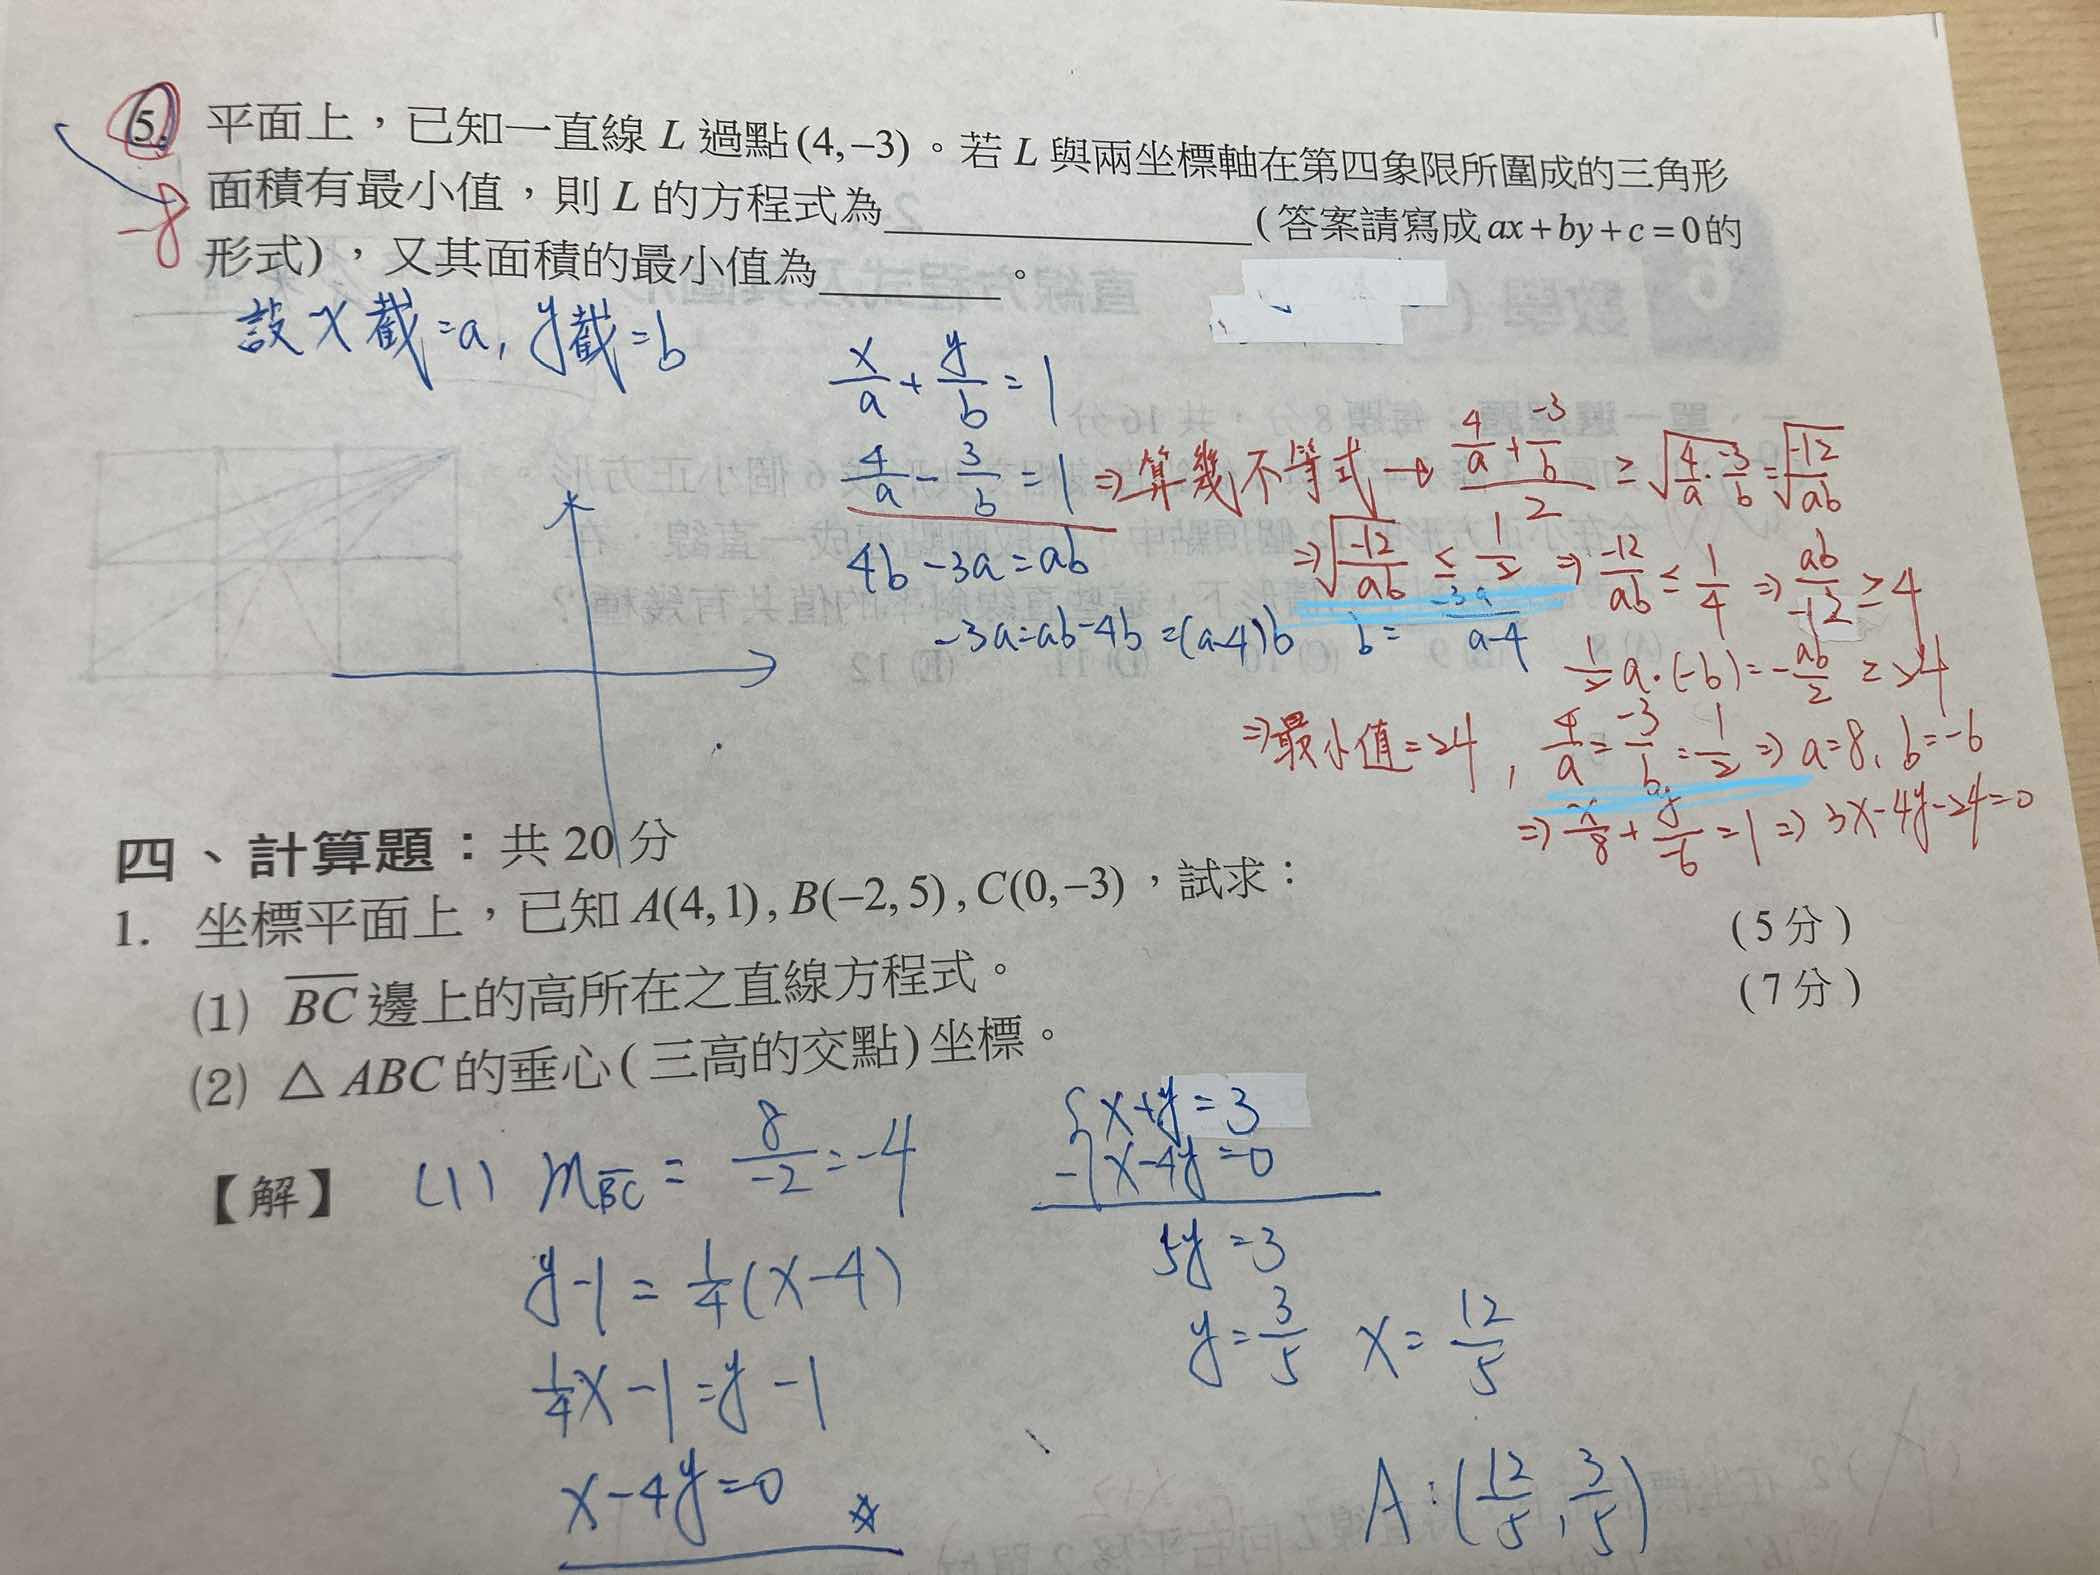 5. 平面上，已知一直線 L 過點(4,−3)。若 L 與兩坐標軸在第四象限所圍成的三角形
-8 面積有最小值，則 L 的方程式為____________(答案請寫成 ax+by+c=0的
形式)，又其面積的最小值為________。
設 x 截=a, y截=b
x/a + y/b = 1
4/a - 3/b = 1 ⇒ 算幾不等式 → (4/a + -3/b)/2 ≥ √(4/a · -3/b) = √(-12/ab)
4b-3a=ab
⇒ √(-12/ab) ≤ 1/2 ⇒ -12/ab ≤ 1/4 ⇒ ab/-12 ≥ 4
-3a=ab-4b=(a-4)b b= -3a/(a-4)
1/2 a·(-b) = -ab/2 ≥ 24
⇒ 最小值=24, 4/a = -3/b = 1/2 ⇒ a=8, b=-6
⇒ x/8 + y/-6 = 1 ⇒ 3x-4y-24=0
四、計算題：共 20 分
1. 坐標平面上，已知 A(4,1), B(−2,5), C(0,−3)，試求：
(1) BC 邊上的高所在之直線方程式。 (5分)
(2) △ABC 的垂心(三高的交點)坐標。 (7分)
【解】 (1) mBC = 8/-2 = -4
y-1 = 1/4(x-4)
1/4x-1=y-1
x-4y=0
x+y=3
- x-4y=0
5y=3
y=3/5 x=12/5
A:(12/5, 3/5)